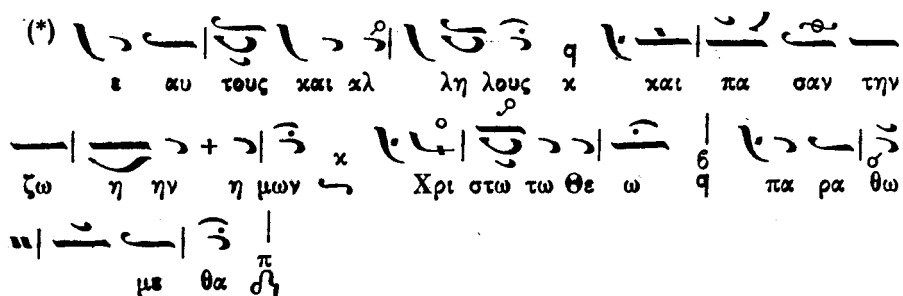 (*)
ε αυ τους και αλ λη λους κ και πα σαν την
ζω η ην η μων κ Χρι στω τω Θε ω πα ρα θω
με θα π